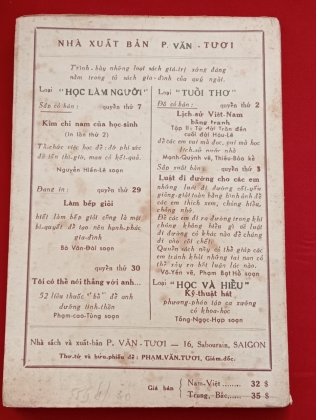 NHÀ XUẤT BẢN P. VĂN-TƯƠI
Trình-bày những loại sách giá-trị xứng đáng
nằm trong tủ sách gia-đình của quý ngài.
Loại "HỌC LÀM NGƯỜI"
Sắp có bán : quyển thứ 7
Kim chỉ nam của học-sinh
(in lần thứ 2)
Tổ-chức việc học để : đỡ phí sức
đỡ tốn thì-giờ, mau có kết-quả.
Nguyễn Hiến-Lê soạn
Đang in : quyển thứ 29
Làm bếp giỏi
biết làm bếp giỏi cũng là một
bí-quyết để tạo vạn hạnh-phúc
gia-đình
Bà Vân-Đài soạn
quyển thứ 30
Tôi có thể nói thẳng với anh...
52 liều thuốc "bổ" để anh
dưỡng tinh-thần
Phạm-cao-Tùng soạn
Loại "TUỔI THƠ"
Đã có bán : quyển thứ 2
Lịch-sử Việt-Nam
bằng tranh
Tập II: Từ đời Trần đến
cuối đời Hậu-Lê
để các em vui mà đọc, vui mà học
lịch-sử nước nhà
Mạnh-Quỳnh vẽ, Thiếu-Bảo kể
Sắp xuất bản : quyển thứ 3
Luật đi đường cho các em
những luật đi đường
giảng-giải toàn bằng hình-ảnh để
các em thích xem, chóng hiểu,
chóng nhớ.
Để các em đi ra đường trong khi
chúng không hiểu gì về luật
đi đường có khác nào để chúng
đi cho
Quyển sách này có thể giúp các em
tránh khỏi những tai nạn có
thể xảy ra bất luận lúc nào.
Võ-Yến vẽ, Phạm Bạt-Hổ soạn
Loại "HỌC VÀ HIỂU"
Kỹ-thuật hát
phương-pháp tập ca xướng
có khoa-học
Tống-Ngọc-Hạp soạn
Nhà sách và xuất-bản P. VĂN-TƯƠI — 16, Sabourain, SAIGON
Thơ-từ và bưu-phiếu đề : PHẠM.VĂN.TƯƠI, Giám.đốc.
Giá bán
Nam-Việt........ 32 $
Trung, Bắc..... 35 $